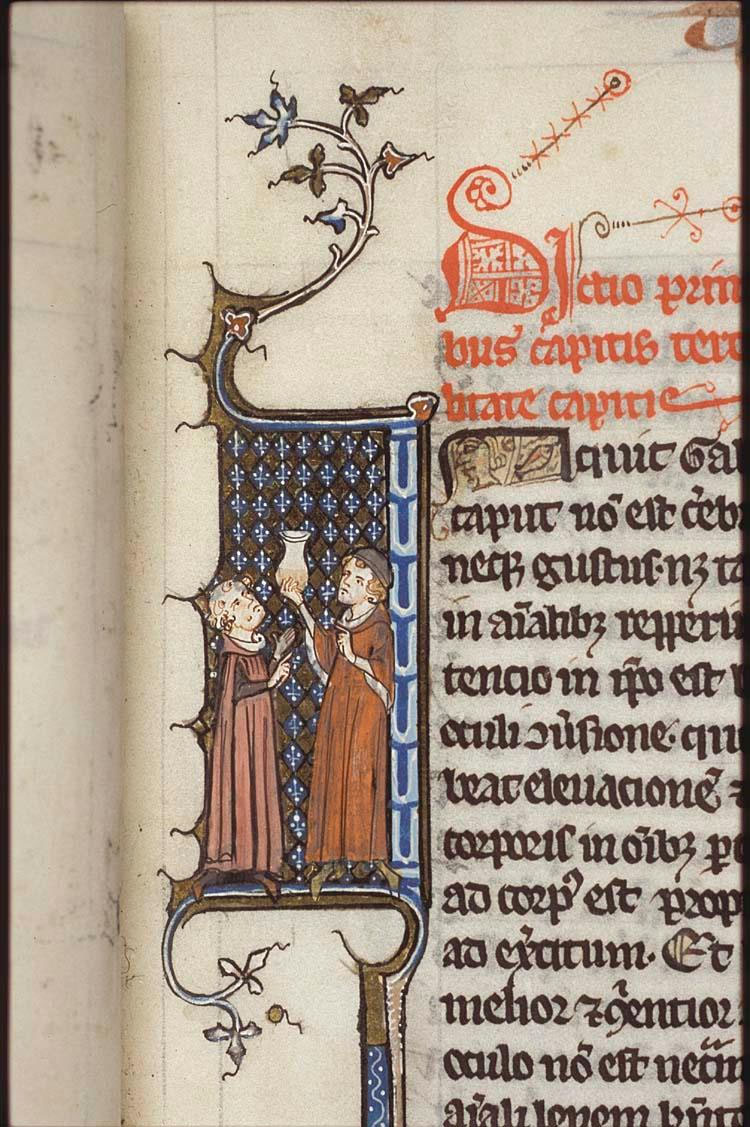 Dictio prim
bus capitis terc
litate capitis
Inquit Gal
caput nō est c̄eb
neqꝫ gustus· nꝫ ta
in aīalibꝫ repperiu
tencio in ip̄o est
oculi ↄuīsione· qui
beat eleuacionē ⁊
corporis in oībꝫ p
ad corpꝰ est prop
ad ex̄citum· Et
melior ⁊
oculo nō est nec̄
aīali lenem